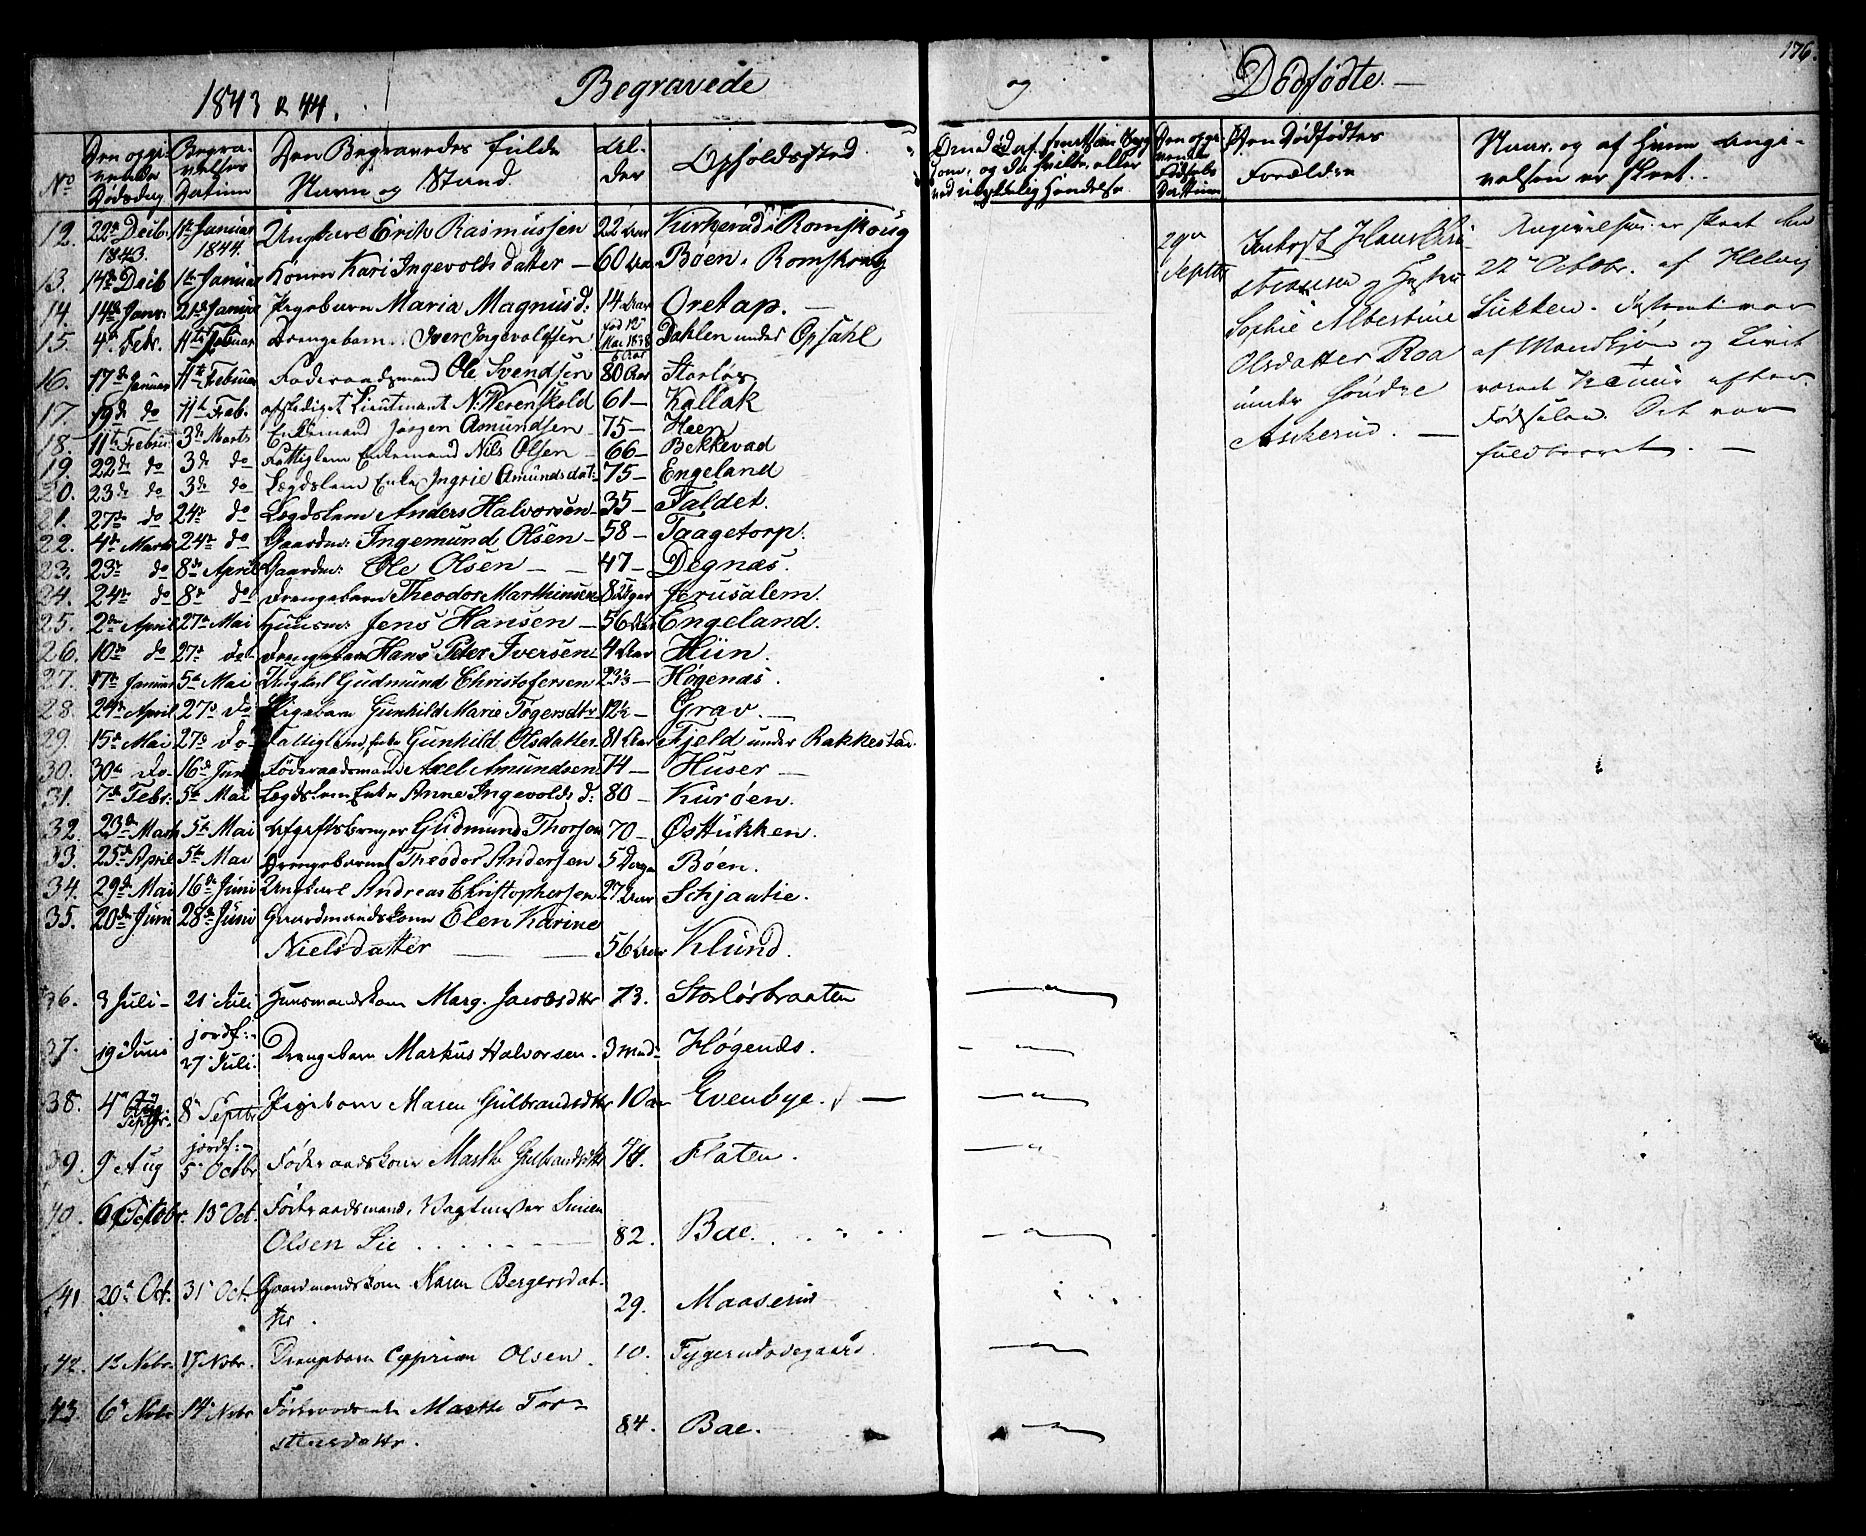 176.
1843 & 44. Begravede og Dødfødte.
No Den opgivende Dødsdag Begravelses Datum Den Begravedes fulde Navn og Stand. Alder Opholdsstød Den opgivende Fødsels Dattum Den Dødfødtes Forældre Naar, og af hvem Angivelsen er skeet.
12. 22de Decb. 1843. 1ste Januar 1844. Ungkarl Erik Rasmussen 22 Aar Kirkerud i Romskoug
13. 14de Decb 1ste Januar Konen Kari Ingevoldsdatter — 60 Aar Bøen i Romskoug
14. 14de Janr. 21de Januar Pigebarn Maria Magnusd: 14 Aar Oretap. —
15. 4de Febr. 11te Februar Drengebarn Iver Ingevoldsen født 12 Mai 1838 6 Aar Dahlen under Opsahl
16. 17de Januar 11te Februar Føderaadsmand Ole Svendsen 80 Aar Storløs
17. 19de do 11te Feb. afskediget Lieutenant N: Werenskold 61 — Kallak
18. 11te Februar 3de Marts Enkemand Jørgen Amundsen — 75 — Heen
19. 22de do 3de do Fattiglem Enkemand Nils Olsen — 66 — Bekkevad
20. 23de do 3de do Lægdslem Enke Ingrie Amundsdat: 75 — Engeland
21. 27de do 24de do Lægdslem Anders Halvorsen — 35 — Faldet.
22. 4de Marts 24de do Gaardm: Ingemund Olsen — 58 — Taagetorp.
23. 23de do 8de April Gaardm: Ole Olsen — 47 — Degnæs.
24. 24de do 8de do Drengebarn Theodor Marthinsen 8 Uger Jerusalem.
25. 2den April 27de Mai Huusm: Jens Hansen — 56 Aar Engeland.
26. 10de do 27de do Drengebarn Hans Peter Iversen 4 Aar Hiin.
27. 17de Januar 5te Mai Ungkarl Gudmund Christofersen 23½ — Høgenæs.
28. 24de April 27de do Pigebarn Gunhild Marie Togersdtr 12½ — Grav. —
29. 15de Mai 27de do Fattiglem Enke Gunhild Olsdatter 81 Aar Fjeld under Rakkestad
30. 30te do 16de Juni Føderaadsmand Axel Amundsen 74 — Huser —
31. 7de Febr: 5te Mai Lægdslem Enke Anne Ingevolds d: 80 — Kurøen.
32. 23de Marts 5te Mai Afgiftsbruger Gudmund Thorsen 70 — Østtukken.
33. 25de April 5te Mai Drengebarnet Theodor Andersen 5 Dage Bøen.
34. 29de Mai 16de Juni Ungkarl Andreas Christophersen 27 Aar Schjautie.
35. 20de Juni 28de Juni Gaardmandskone Elen Karine
Nielsdatter — 56 Aar Klund.
36. 3 Juli 21 Juli Huusmandskone Marg. Jacobsdttr 73. Storløsbraaten
37. 19 Juni jordf: 27 Juli: Drengebarn Markus Halvorsen. 3 Mnd. Høgenæs.
38. 4 Septbr. 8 Septbr Pigebarn Maren Gulbrandsdttr 10 Aar Evenbye. —
39. 9 Aug jordf: 5 Octbr Føderaadskone Marthe Gulbrandsdttr 74. Flaten.
40. 6 Octobr. 13 Oct. Føderaadsmand, Vagtmester Simen
Olsen Lie 82. Bae.
41. 20 Oct. 31 Oct. Gaardmandskone Maren Bergersdat-
ter. 29. Maaserud
42. 12 Nobr. 17 Nobr. Drengebarn Cyprian Olsen. 10. Tygerudødegaard.
43 6 Nobr 14 Nobr Føderaadsenke Marthe Tor-
stensdattr. 84. Bae.
29de Septbr
Inderst Hans Chri-
stiansen og Hustru
Sophie Albertine
Olsdatter Roa
under søndre
Askerud. —
Angivelsen er skeet den
22de Octobr. af Helvig
Tukken. Fosteret var
af Mandkjøn og Livet
været kaldt efter
Fødselen. Det var
fuldbaaret. —